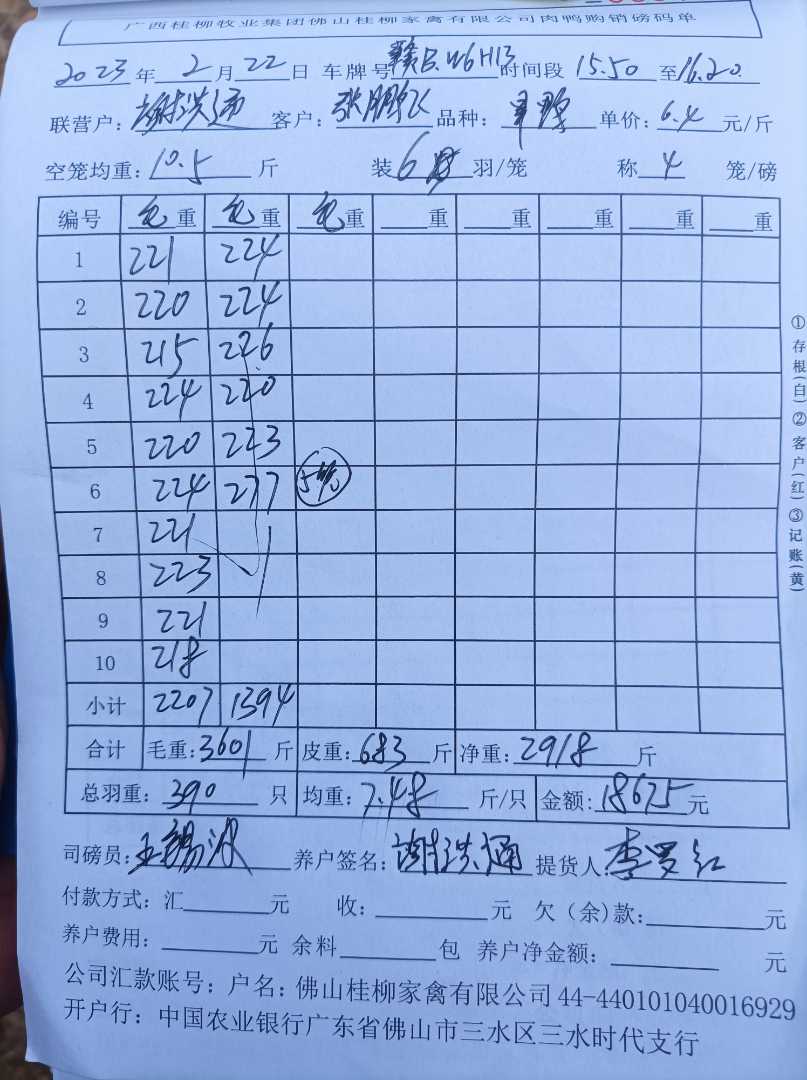 广西桂柳牧业集团佛山桂柳家禽有限公司肉鸭购销磅码单
2023年 2月 22日 车牌号 赣E W6H13 时间段 15.50 至 16.20
联营户: 谢洪通 客户: 张鹏飞 品种: 单价: 6.4 元/斤
空笼均重: 10.5 斤 装 6 羽/笼 称 4 笼/磅
编号 毛重 毛重 毛重 重 重 重 重 重
1 221 224
2 220 224
3 215 226
4 224 220
5 220 223
6 224 277 5笼
7 221
8 223
9 221
10 218
小计 2207 1394
合计 毛重: 3601 斤 皮重: 683 斤 净重: 2918 斤
总羽重: 390 只 均重: 7.48 斤/只 金额: 18675 元
司磅员: 王锡波 养户签名: 谢洪通 提货人: 李罗红
付款方式: 汇 元 收: 元 欠(余)款: 元
养户费用: 元 余料 包 养户净金额: 元
公司汇款账号: 户名: 佛山桂柳家禽有限公司 44-440101040016929
开户行: 中国农业银行广东省佛山市三水区三水时代支行
①存根(白)②客户(红)③记账(黄)